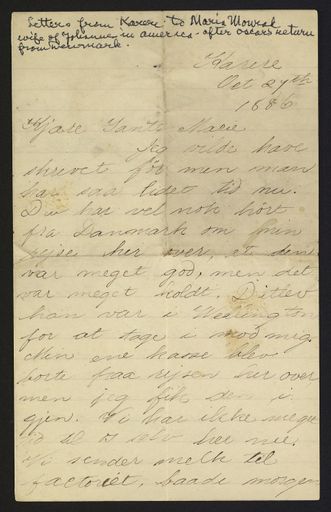 Letters from Karere to Maria Mowrak
wife of Johanne in america - after oscars return
from Denmark.
Karere
Oct 27th
1886
Kjære Tante Marie
Jeg vilde have
skrevet før men man
har saa lidet tid nu.
Du har vel nok hört
fra Danmark om min
rejse her over, at den
var meget god, men det
var meget koldt. Ditlev
han var i Wellington
for at tage i mod mig.
Min ene kasse blev
borte fraa rejsen her over
men jeg fik den i
gjen. Vi har ikke meget
tid til os selv her nu.
Vi sender melk til
factoriet, baade morgen